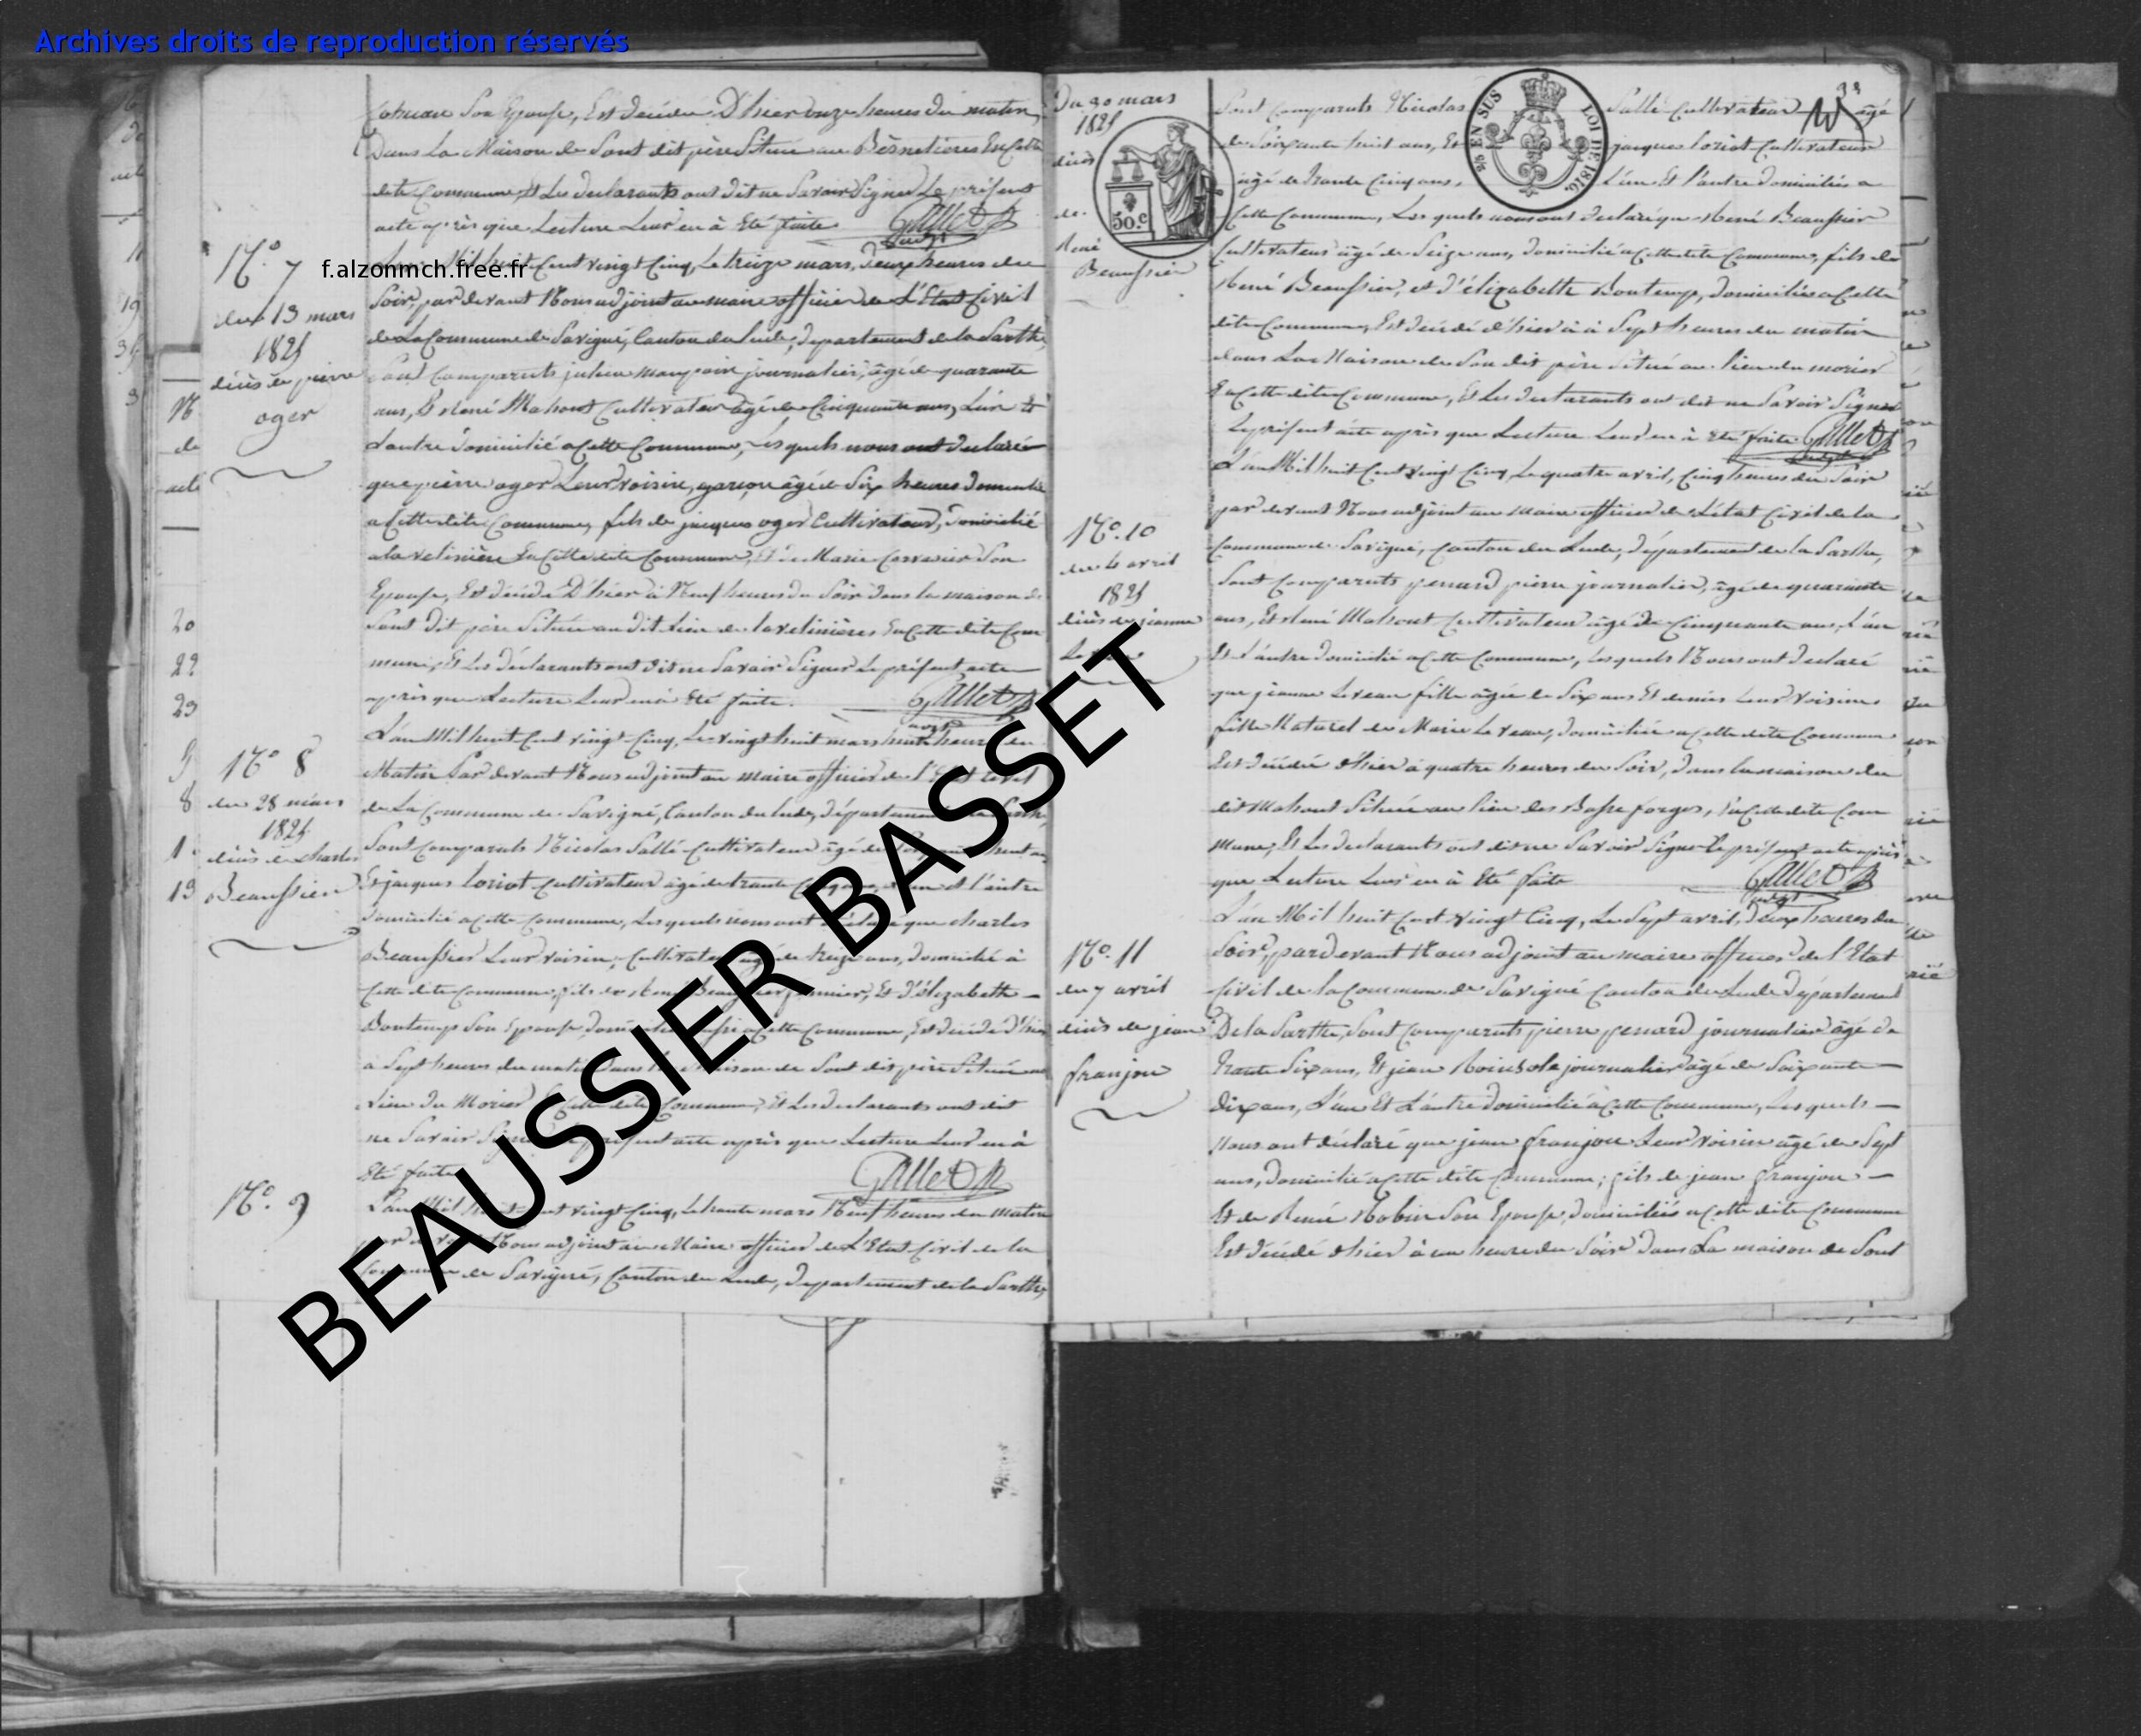 Archives droits de reproduction réservés
f.alzonmch.free.fr
BEAUSSIER BASSET
son Epouse, Est décédée D'hier onze heures du matin,
Dans La Maison de Sont dit père Située aux Besnetières En Cette
dite Commune, Et Les declarants ont dit ne Savoir Signer Le présent
acte après que Lecture Leur en à Eté faite
Gallet
N.o 7
du 13 mars
1825
décès de pierre
oger
L'an Mil huit Cent vingt Cinq, Le treize mars, Deux heures du
Soir, par devant Nous adjoint au maire officier de L'Etat Civil
de La Commune de Savigné, Canton du Lude, Departement de la Sarthe,
Sont Comparents julien journalier, âgé de quarante
ans, Et René Mahout Cultivateur âgé de Cinquante ans, L'un Et
L'autre Domicilié a Cette Commune, Lesquels nous ont Declaré
que pierre oger Leur voisin, garçon âgé de Six heures Domicilié
a Cette dite Commune, fils de jacques oger Cultivateur, Domicilié
a la velinière En Cette dite Commune, Et de Marie Son
Epouse, Est décédé D'hier à Neuf heures du Soir dans la maison de
Sont Dit père Située au dit Lieu de la velinières En Cette dite Com
mune, Et Les Déclarants ont dit ne Savoir Signer Le présent acte
après que Lecture Leur en à Eté faite.
Gallet
N.o 8
du 28 mars
1825
décès de charles
Beaussier
L'an Mil huit Cent vingt Cinq, Le vingt huit mars huit heures du
Matin Par devant Nous adjoint au maire officier de l'Etat Civil
de La Commune de Savigné, Canton du Lude, Département de la Sarthe,
Sont Comparents Nicolas Sallé Cultivateur âgé de Soixante huit ans
Et jacques Loriot Cultivateur âgé de trente Cinq ans, L'un et l'autre
Domicilié a Cette Commune, Lesquels nous ont déclaré que charles
Beaussier Leur voisin, Cultivateur âgé de treize ans, Domicilié à
Cette dite Commune, fils de René Beaussier fermier, Et D'élizabeth
Bontemp Son Epouse, Domiciliés aussi a Cette Commune, Est décédé D'hier
à Sept heures du matin Dans La Maison de Sont dit père Située au
Lieu du Morier Cette dite Commune, Et Les declarants ont dit
ne Savoir Signer Le présent acte après que Lecture Leur en à
Eté faite
Gallet
N.o 9
L'an Mil huit Cent vingt Cinq, Le trente mars Neuf heures du matin
par devant Nous adjoint au Maire officier de L'Etat Civil de la
Commune de Savigné, Canton du Lude, Departement de la Sarthe,
Du 30 mars
1825
décès
de
René
Beaussier
50.c
EN SUS
LOI DE 1816.
Sont Comparents Nicolas Sallé Cultivateur âgé
de Soixante huit ans, Et jacques Loriot Cultivateur
âgé de trente Cinq ans, L'un Et l'autre Domiciliés a
Cette Commune, Lesquels nous ont declaré que René Beaussier
Cultivateur âgé de Seize ans, Domicilié a Cette dite Commune, fils de
René Beaussier, et d'élizabeth Bontemp, Domiciliés a Cette
dite Commune, Est décédé d'hier à Sept heures du matin
dans La Maison de Son dit père Situé au Lieu du morier
En Cette dite Commune, Et Les declarants ont dit ne Savoir Signer
Le présent acte après que Lecture Leur en à Eté faite
Gallet
N.o 10
du 4 avril
1825
décès de jeanne
L'an Mil huit Cent vingt Cinq, Le quatre avril, Cinq heures du Soir
par devant Nous adjoint au maire officier de L'état Civil de la
Commune de Savigné, Canton du Lude, Département de la Sarthe,
Sont Comparents penard pierre journalier, âgé de quarante
ans, Et René Mahout Cultivateur âgé de Cinquante ans, L'un
Et L'autre Domicilié a Cette Commune, Lesquels Nous ont Declaré
que jeanne Leveau fille âgée de Six ans Et demie Leur voisine
fille Naturel de Marie Leveau, Domiciliée a Cette dite Commune
Est Décédée d'hier à quatre heures du Soir, Dans la maison du
dit Mahout Située au Lieu des Basse forges, En Cette dite Com
mune, Et Les Declarants ont dit ne Savoir Signer Le présent acte après
que Lecture Leur en à Eté faite
Gallet
N.o 11
du 7 avril
décès de jean
franjou
L'an Mil huit Cent vingt Cinq, Le Sept avril, Deux heures du
Soir, pardevant Nous adjoint au maire officier de l'Etat
Civil de la Commune de Savigné Canton du Lude Département
De la Sarthe, Sont Comparents pierre penard journalier âgé de
trente Six ans, Et jean journalier âgé de Soixante
Dix ans, L'un Et L'autre Domicilié à Cette Commune, Lesquels
Nous ont déclaré que jean franjou Leur voisin âgé de Sept
ans, Domicilié a Cette dite Commune, fils de jean franjou
Et de Renée Robin Son Epouse, Domiciliés a Cette dite Commune
Est Décédé d'hier à une heure du Soir Dans La maison de Sont